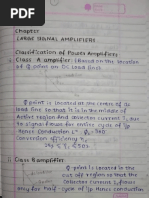 Chapter
LARGE SIGNAL AMPLIFIERS
Classification of Power Amplifiers
Class A amplifier: (Based on the location
of Q point on DC Load line)
Q point is located at the centre of dc
load line so that it is in the middle of
active region and collector current I_c due
to signal flows for entire cycle of i/p
Hence conduction L° = 360
Conversion efficiency
ii. Class B amplifier.
Q point is located in the cut
off region so that the
collector current I_c flows
only for half cycle of i/p Hence conduction